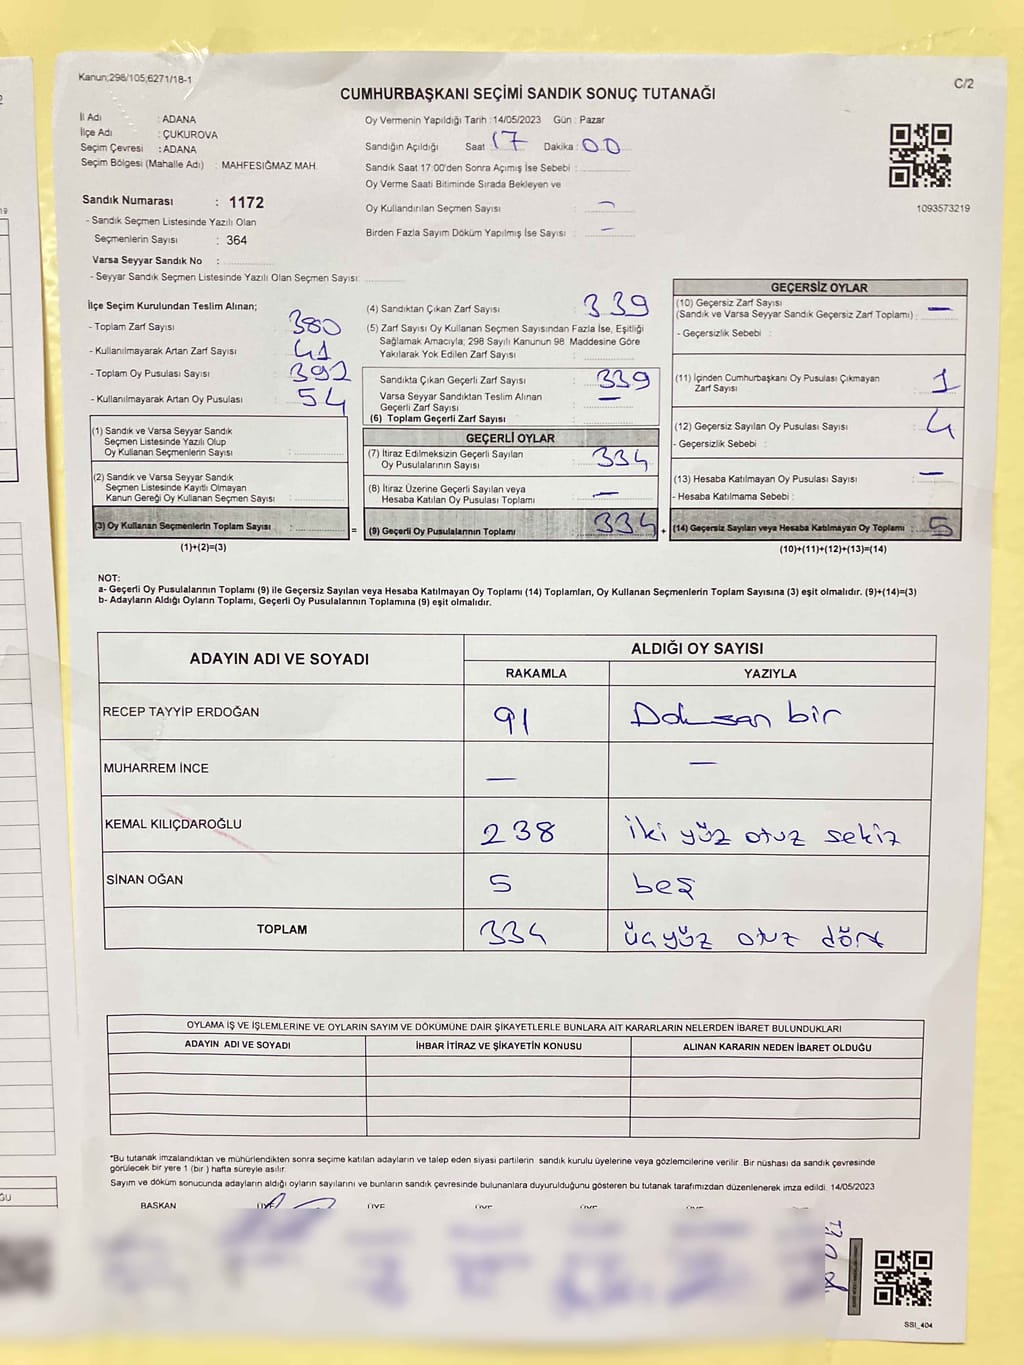 Kanun;298/105,6271/18-1
C/2
CUMHURBAŞKANI SEÇİMİ SANDIK SONUÇ TUTANAĞI
İl Adı : ADANA
İlçe Adı : ÇUKUROVA
Seçim Çevresi : ADANA
Seçim Bölgesi (Mahalle Adı) : MAHFESIĞMAZ MAH.
Sandık Numarası : 1172
- Sandık Seçmen Listesinde Yazılı Olan
Seçmenlerin Sayısı : 364
Varsa Seyyar Sandık No :
- Seyyar Sandık Seçmen Listesinde Yazılı Olan Seçmen Sayısı:
Oy Vermenin Yapıldığı Tarih :14/05/2023 Gün : Pazar
Sandığın Açıldığı Saat : 17 Dakika : 00
Sandık Saat 17:00'den Sonra Açımış İse Sebebi :
Oy Verme Saati Bitiminde Sırada Bekleyen ve
Oy Kullandırılan Seçmen Sayısı : —
Birden Fazla Sayım Döküm Yapılmış İse Sayısı : —
1093573219
İlçe Seçim Kurulundan Teslim Alınan;
- Toplam Zarf Sayısı : 380
- Kullanılmayarak Artan Zarf Sayısı : 41
- Toplam Oy Pusulası Sayısı : 392
- Kullanılmayarak Artan Oy Pusulası : 54
(1) Sandık ve Varsa Seyyar Sandık
Seçmen Listesinde Yazılı Olup
Oy Kullanan Seçmenlerin Sayısı :
(2) Sandık ve Varsa Seyyar Sandık
Seçmen Listesinde Kayıtlı Olmayan
Kanun Gereği Oy Kullanan Seçmen Sayısı :
(3) Oy Kullanan Seçmenlerin Toplam Sayısı :
(1)+(2)=(3)
=
(4) Sandıktan Çıkan Zarf Sayısı : 339
(5) Zarf Sayısı Oy Kullanan Seçmen Sayısından Fazla İse, Eşitliği
Sağlamak Amacıyla; 298 Sayılı Kanunun 98 Maddesine Göre
Yakılarak Yok Edilen Zarf Sayısı :
Sandıkta Çıkan Geçerli Zarf Sayısı : 339
Varsa Seyyar Sandıktan Teslim Alınan
Geçerli Zarf Sayısı : —
(6) Toplam Geçerli Zarf Sayısı :
GEÇERLİ OYLAR
(7) İtiraz Edilmeksizin Geçerli Sayılan
Oy Pusulalarının Sayısı : 334
(8) İtiraz Üzerine Geçerli Sayılan veya
Hesaba Katılan Oy Pusulası Toplamı : —
(9) Geçerli Oy Pusulalarının Toplamı : 334
+
GEÇERSİZ OYLAR
(10) Geçersiz Zarf Sayısı
(Sandık ve Varsa Seyyar Sandık Geçersiz Zarf Toplamı) : —
- Geçersizlik Sebebi :
(11) İçinden Cumhurbaşkanı Oy Pusulası Çıkmayan
Zarf Sayısı : 1
(12) Geçersiz Sayılan Oy Pusulası Sayısı : 4
- Geçersizlik Sebebi :
(13) Hesaba Katılmayan Oy Pusulası Sayısı : —
- Hesaba Katılmama Sebebi :
(14) Geçersiz Sayılan veya Hesaba Katılmayan Oy Toplamı : 5
(10)+(11)+(12)+(13)=(14)
NOT:
a- Geçerli Oy Pusulalarının Toplamı (9) ile Geçersiz Sayılan veya Hesaba Katılmayan Oy Toplamı (14) Toplamları, Oy Kullanan Seçmenlerin Toplam Sayısına (3) eşit olmalıdır. (9)+(14)=(3)
b- Adayların Aldığı Oyların Toplamı, Geçerli Oy Pusulalarının Toplamına (9) eşit olmalıdır.
ADAYIN ADI VE SOYADI ALDIĞI OY SAYISI
RAKAMLA YAZIYLA
RECEP TAYYİP ERDOĞAN 91 Doksan bir
MUHARREM İNCE — —
KEMAL KILIÇDAROĞLU 238 iki yüz otuz sekiz
SİNAN OĞAN 5 beş
TOPLAM 334 üç yüz otuz dört
OYLAMA İŞ VE İŞLEMLERİNE VE OYLARIN SAYIM VE DÖKÜMÜNE DAİR ŞİKAYETLERLE BUNLARA AİT KARARLARIN NELERDEN İBARET BULUNDUKLARI
ADAYIN ADI VE SOYADI İHBAR İTİRAZ VE ŞİKAYETİN KONUSU ALINAN KARARIN NEDEN İBARET OLDUĞU
*Bu tutanak imzalandıktan ve mühürlendikten sonra seçime katılan adayların ve talep eden siyasi partilerin sandık kurulu üyelerine veya gözlemcilerine verilir. Bir nüshası da sandık çevresinde
görülecek bir yere 1 (bir ) hafta süreyle asılır.
Sayım ve döküm sonucunda adayların aldığı oyların sayılarını ve bunların sandık çevresinde bulunanlara duyurulduğunu gösteren bu tutanak tarafımızdan düzenlenerek imza edildi. 14/05/2023
BAŞKAN ÜYE ÜYE ÜYE ÜYE ÜYE ÜYE
SSI_404